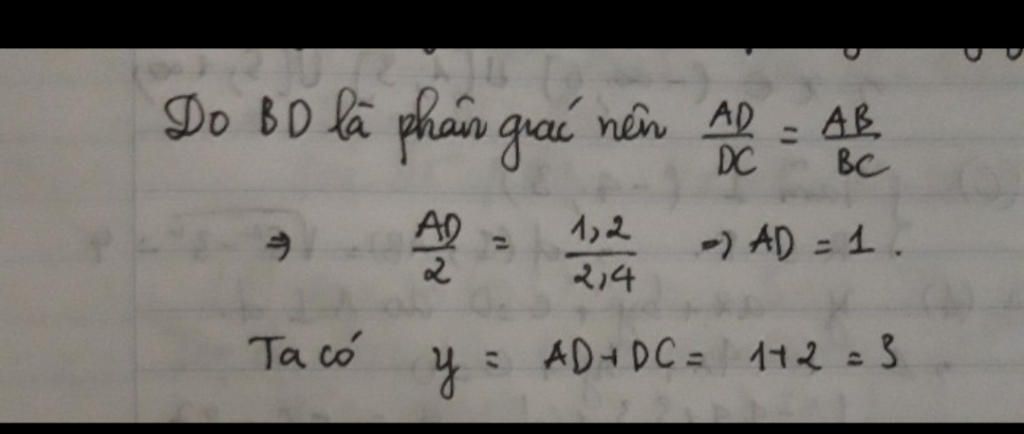 Do BD là phân giác nên AD/DC = AB/BC
⇒ AD/2 = 1,2/2,4 ⇒ AD = 1.
Ta có y = AD + DC = 1 + 2 = 3